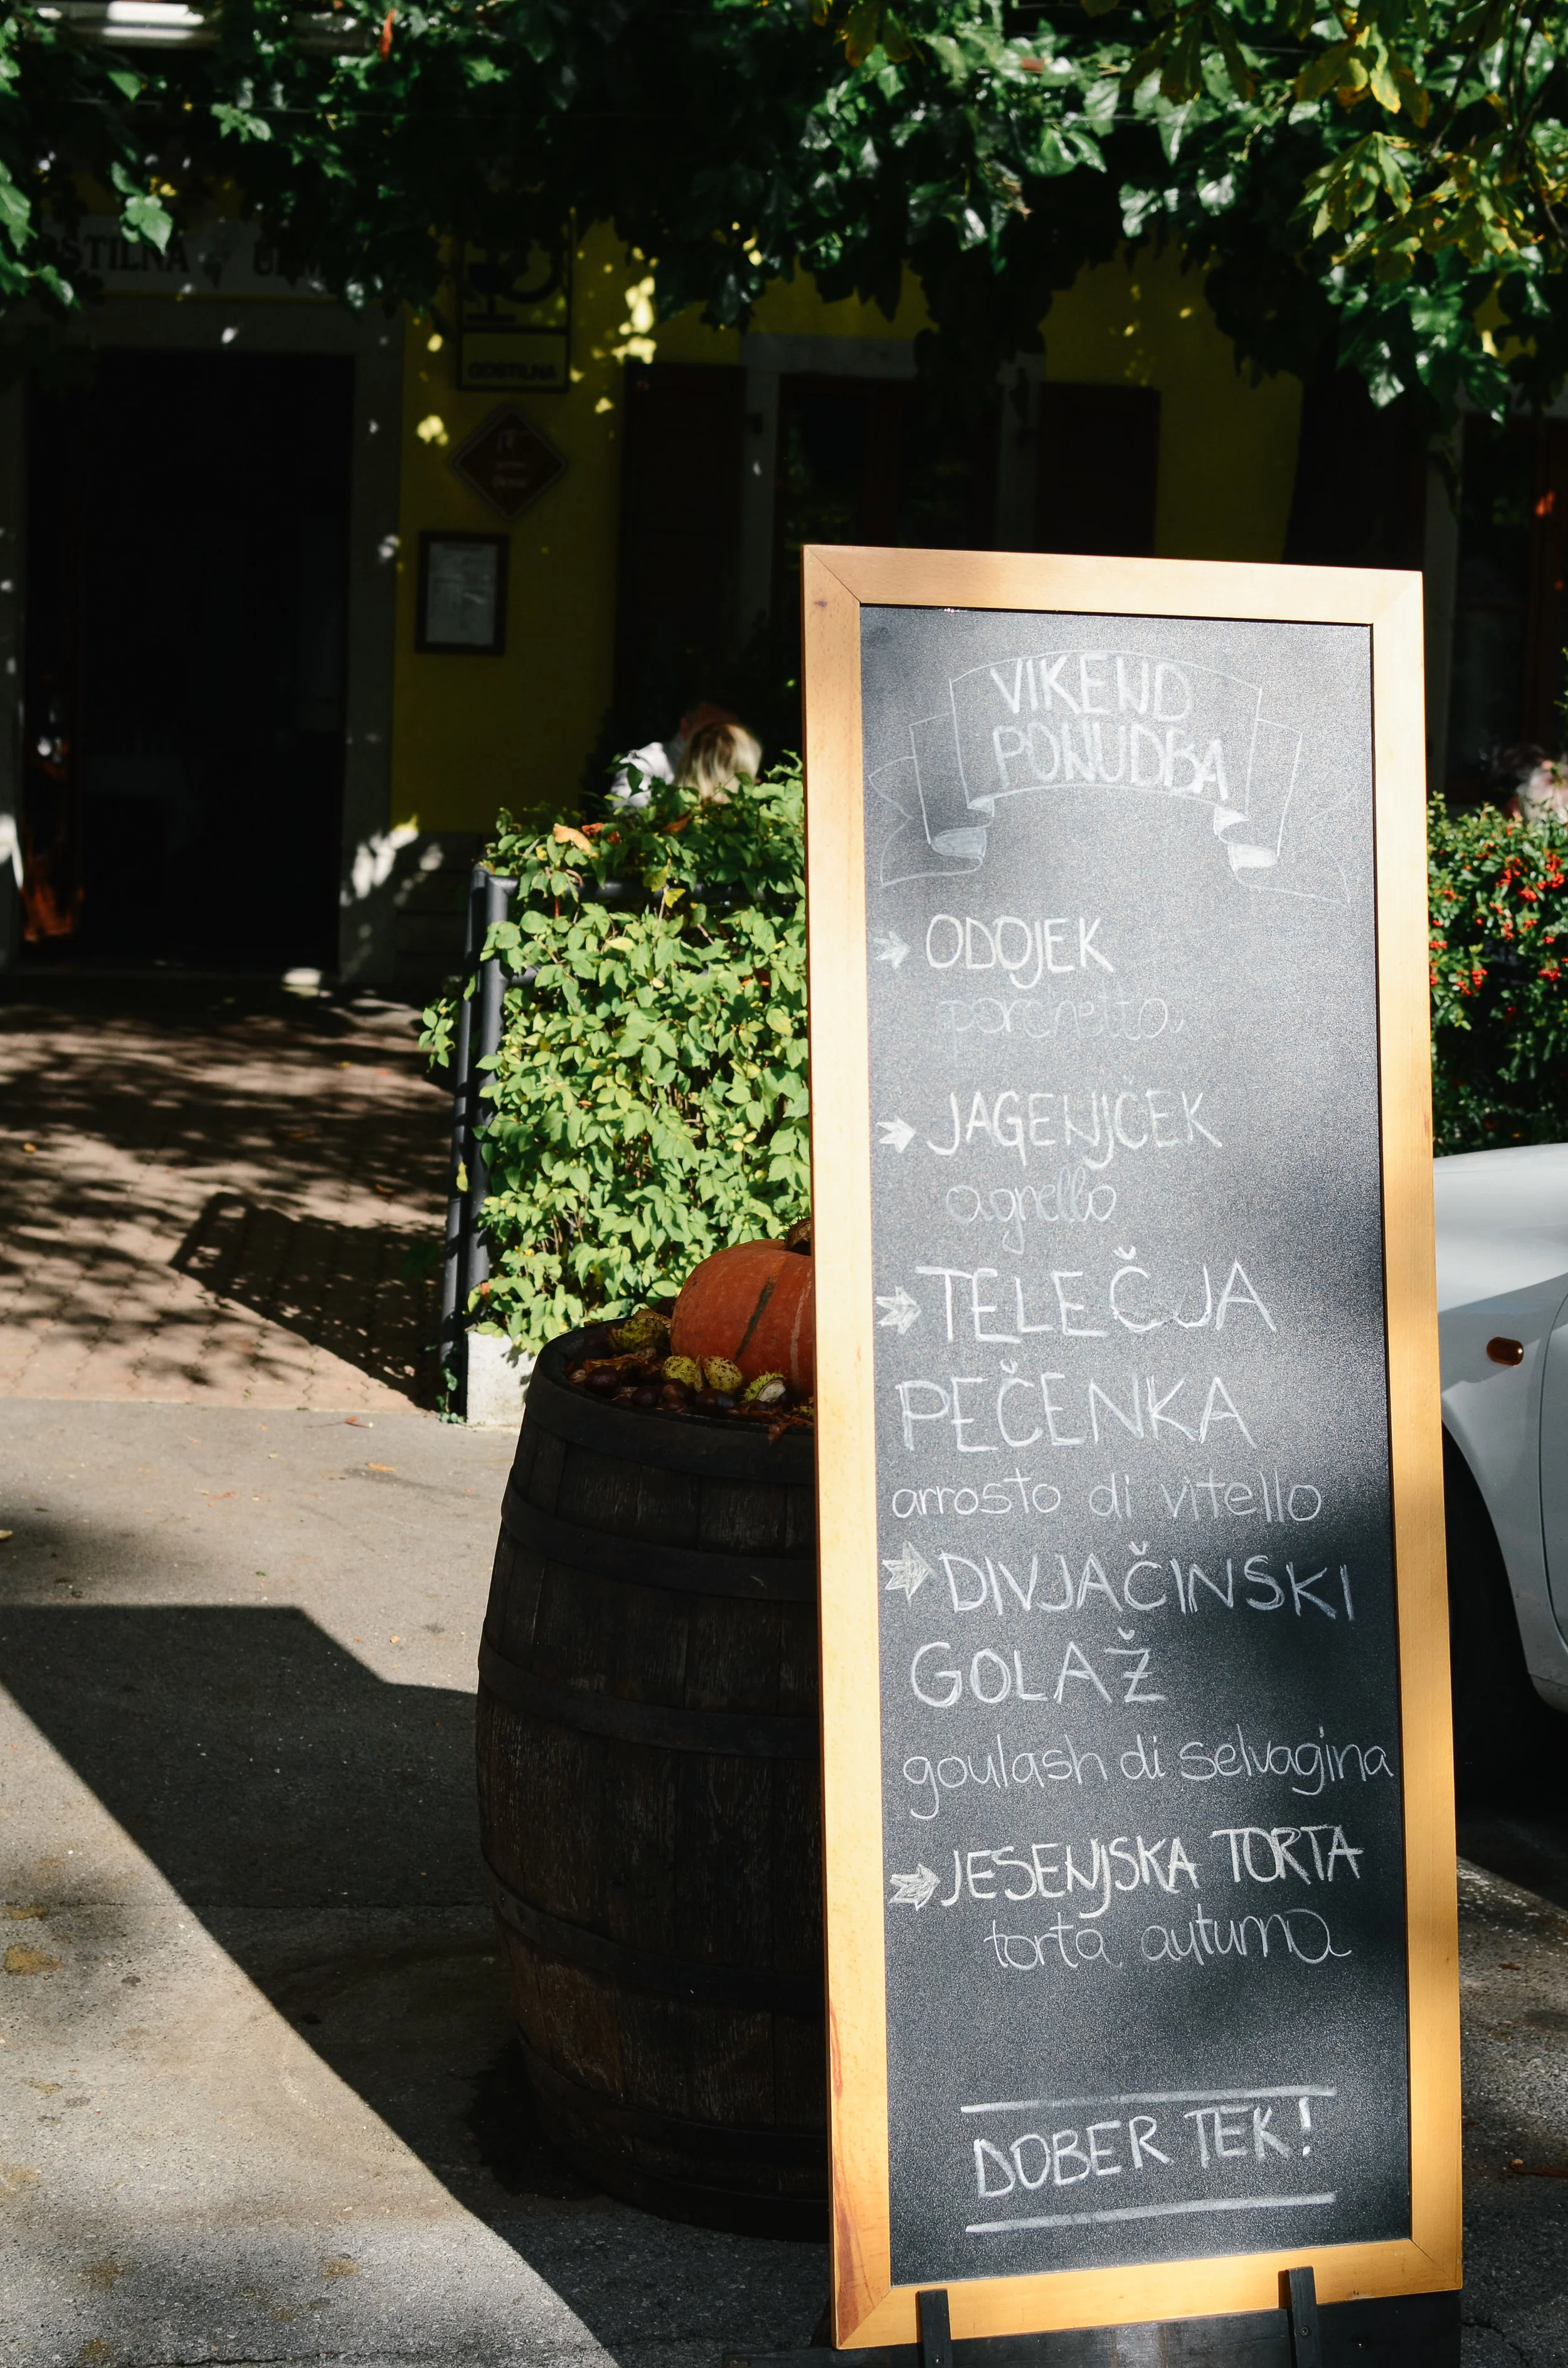 GOSTILNA
VIKEND
PONUDBA
ODOJEK
porchetta
JAGENJČEK
agnello
TELEČJA
PEČENKA
arrosto di vitello
DIVJAČINSKI
GOLAŽ
goulash di selvagina
JESENJSKA TORTA
torta autumna
DOBER TEK!